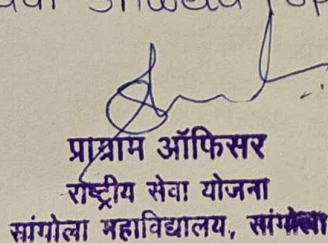 प्राग्राम ऑफिसर
राष्ट्रीय सेवा योजना
सांगोला महाविद्यालय, सांगोला